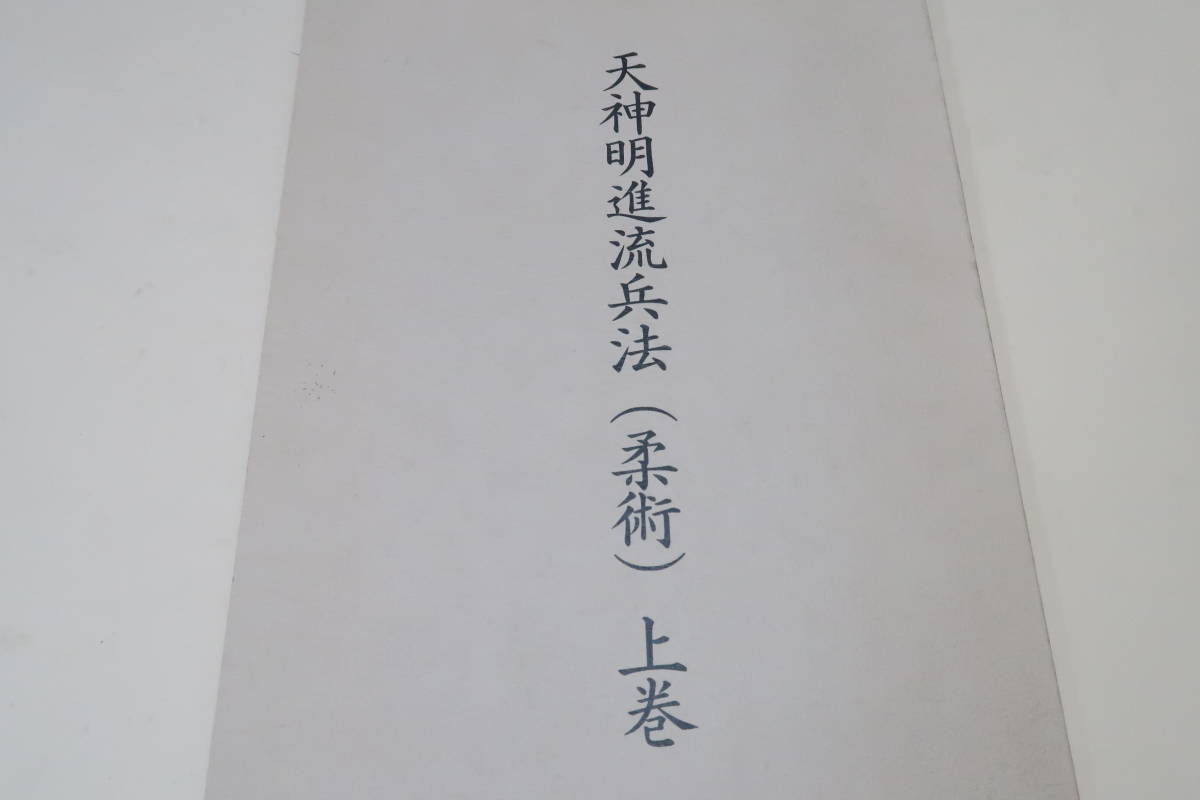 天神明進流兵法（柔術）　上巻